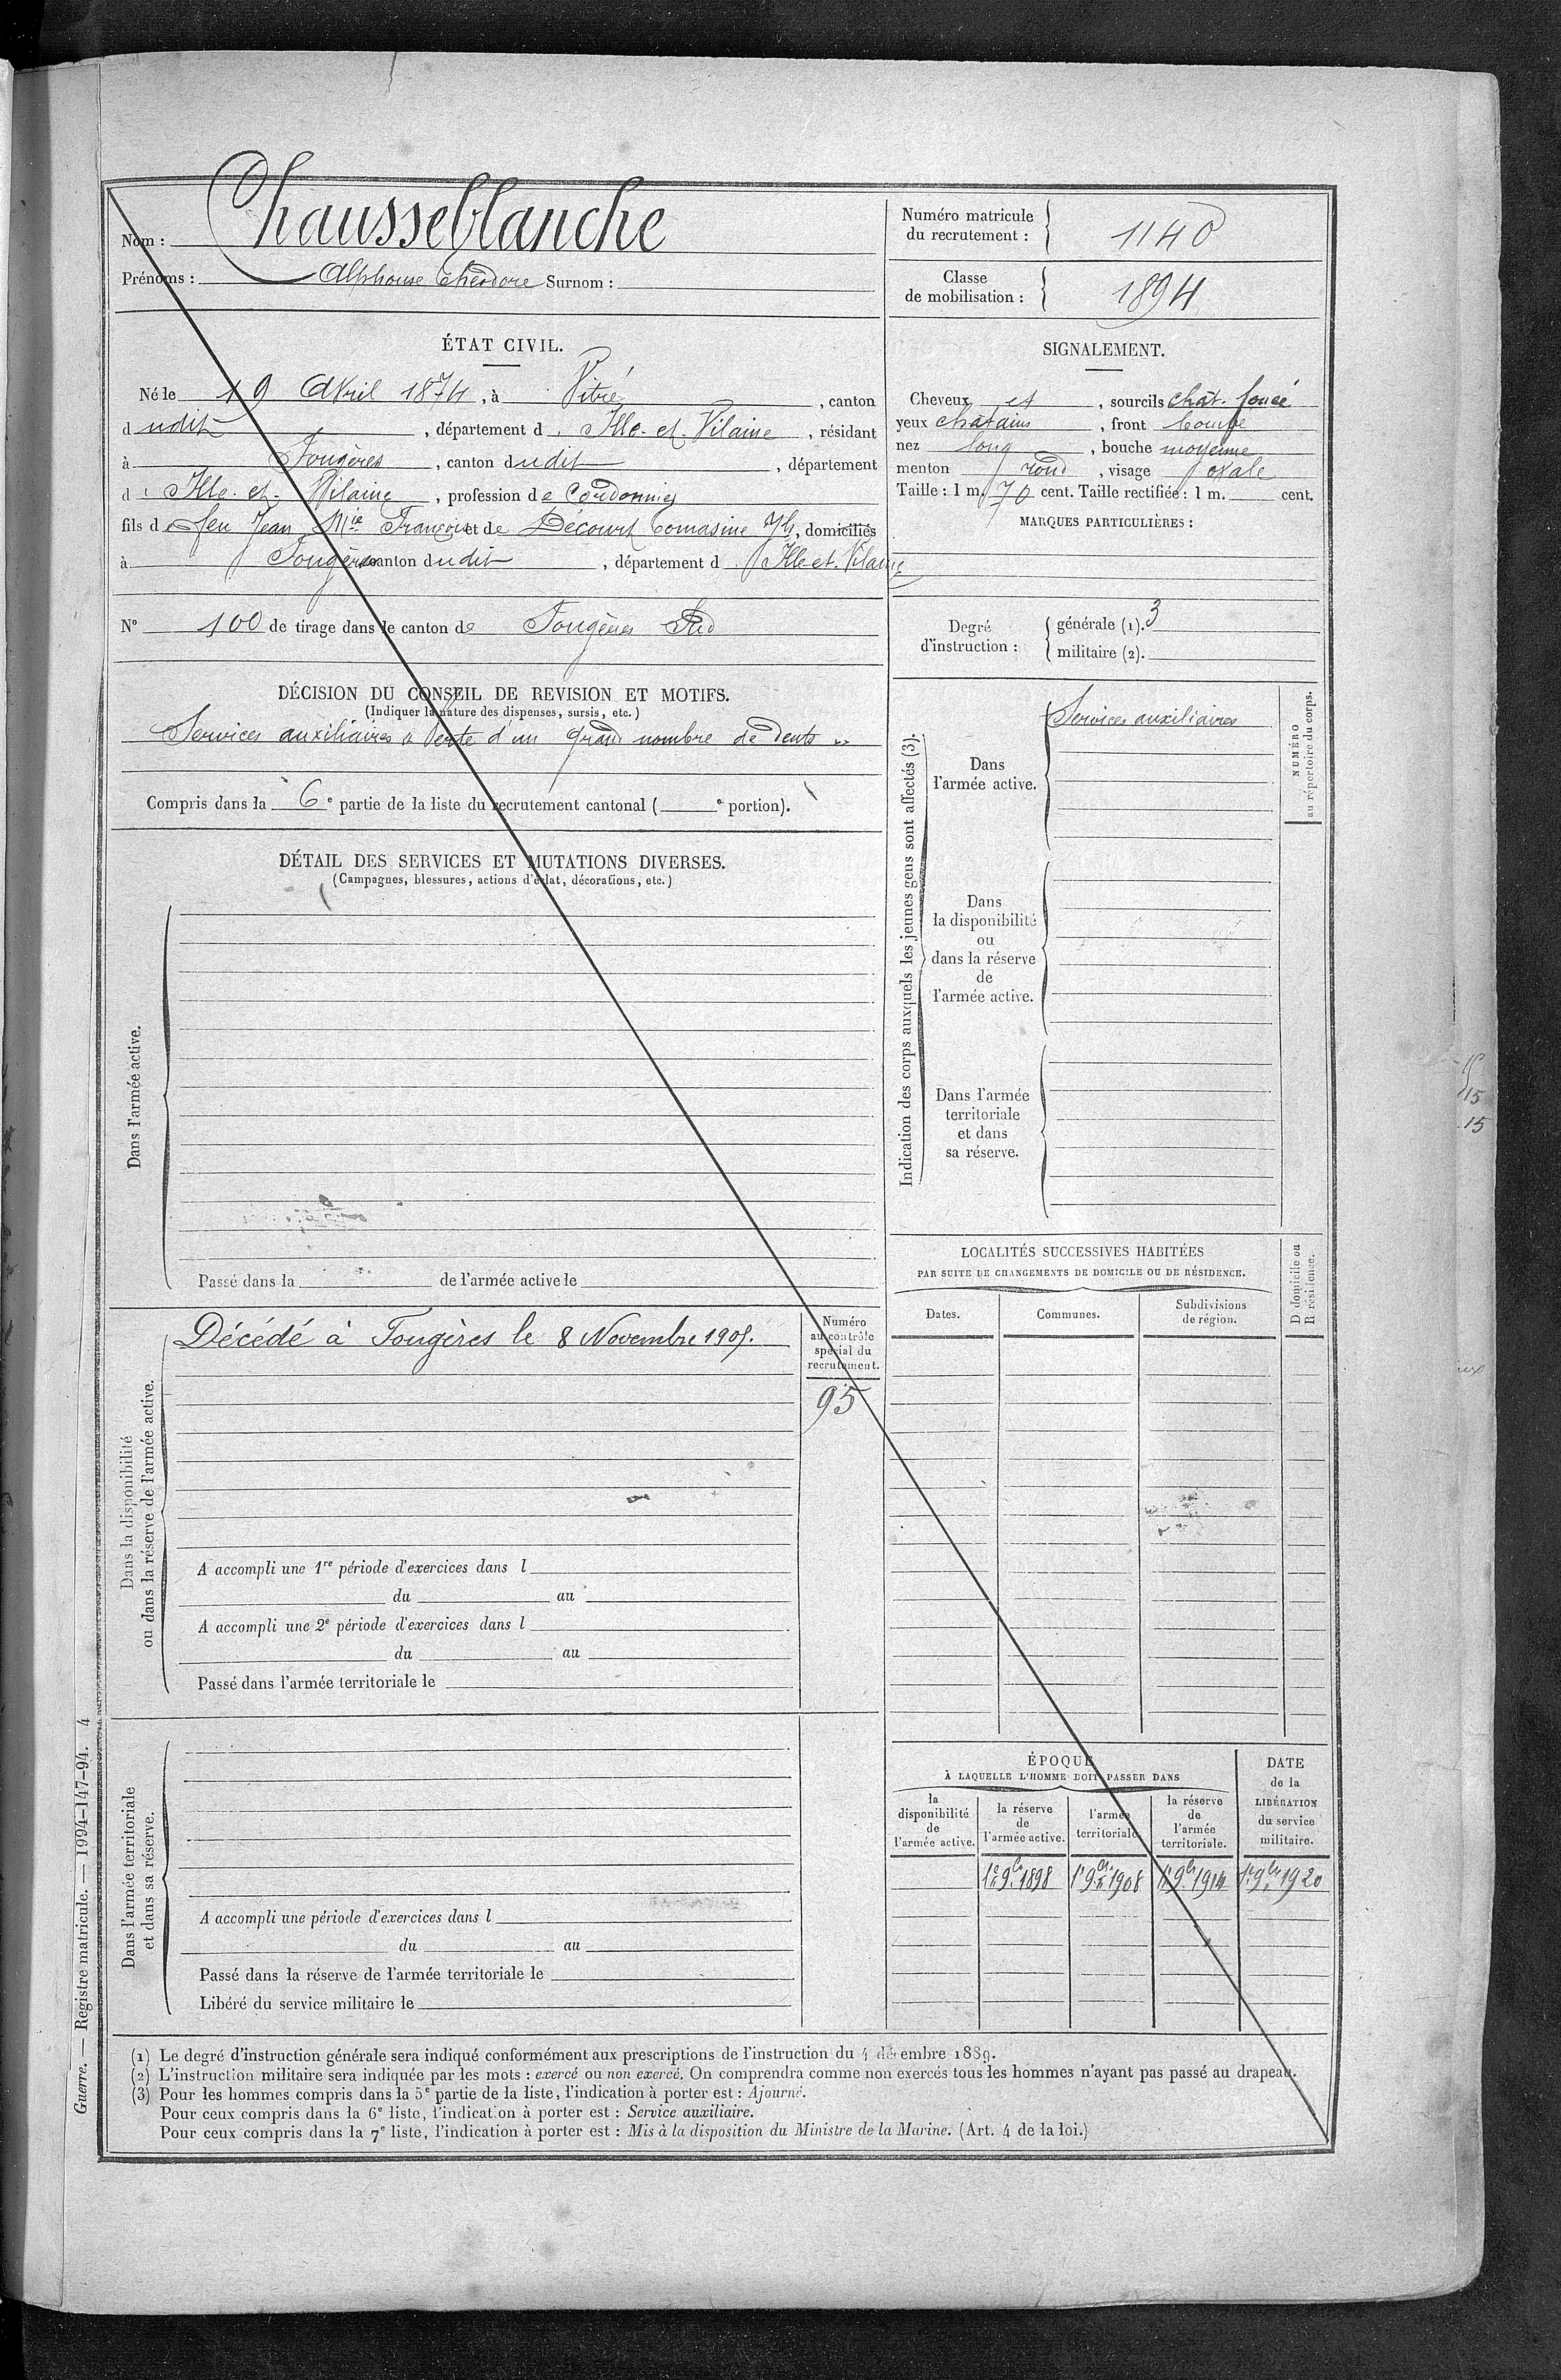 Nom : Chausseblanche
Prénoms : Alphonse Théodore Surnom :
Numéro matricule du recrutement : 1140
Classe de mobilisation : 1894
ÉTAT CIVIL.
Né le 19 Avril 1874, à Vitré, canton
dudit, département d'Ille-et-Vilaine, résidant
à Fougères, canton dudit, département
d'Ille-et-Vilaine, profession de Cordonnier
fils de feu Jean Mie François et de Décourt, domiciliés
à Fougères canton dudit, département d Ille-et-Vilaine
No 100 de tirage dans le canton de Fougères Sud
SIGNALEMENT.
Cheveux et, sourcils chât. foncé
yeux chatains, front bombé
nez long, bouche moyenne
menton rond, visage ovale
Taille : 1 m. 70 cent. Taille rectifiée : 1 m. cent.
MARQUES PARTICULIÈRES :
Degré d'instruction :
générale (1). 3
militaire (2).
DÉCISION DU CONSEIL DE REVISION ET MOTIFS.
(Indiquer la nature des dispenses, sursis, etc.)
Services auxiliaires Perte d'un grand nombre de dents
Compris dans la 6e partie de la liste du recrutement cantonal ( e portion).
DÉTAIL DES SERVICES ET MUTATIONS DIVERSES.
(Campagnes, blessures, actions d'éclat, décorations, etc.)
Dans l'armée active.
Passé dans la de l'armée active le
Indication des corps auxquels les jeunes gens sont affectés (3).
Dans
l'armée active.
Services auxiliaires
NUMÉRO
au répertoire du corps.
Dans
la disponibilité
ou
dans la réserve
de
l'armée active.
Dans l'armée
territoriale
et dans
sa réserve.
Dans la disponibilité
ou dans la réserve de l'armée active.
Décédé à Fougères le 8 Novembre 1905.
Numéro
au contrôle
spécial du
recrutement.
95
A accompli une 1re période d'exercices dans l
du au
A accompli une 2e période d'exercices dans l
du au
Passé dans l'armée territoriale le
LOCALITÉS SUCCESSIVES HABITÉES
PAR SUITE DE CHANGEMENTS DE DOMICILE OU DE RÉSIDENCE.
Dates.
Communes.
Subdivisions
de région.
D domicile ou
R résidence.
Dans l'armée territoriale
et dans sa réserve.
A accompli une période d'exercices dans l
du au
Passé dans la réserve de l'armée territoriale le
Libéré du service militaire le
ÉPOQUE
À LAQUELLE L'HOMME DOIT PASSER DANS
la
disponibilité
de
l'armée active.
la réserve
de
l'armée active.
l'armée
territoriale.
la réserve
de
l'armée
territoriale.
DATE
de la
LIBÉRATION
du service
militaire.
1er 9bre 1898
1er 9bre 1908
1er 9bre 1914
1er 9bre 1920
(1) Le degré d'instruction générale sera indiqué conformément aux prescriptions de l'instruction du 4 décembre 1889.
(2) L'instruction militaire sera indiquée par les mots : exercé ou non exercé. On comprendra comme non exercés tous les hommes n'ayant pas passé au drapeau.
(3) Pour les hommes compris dans la 5e partie de la liste, l'indication à porter est : Ajourné.
Pour ceux compris dans la 6e liste, l'indication à porter est : Service auxiliaire.
Pour ceux compris dans la 7e liste, l'indication à porter est : Mis à la disposition du Ministre de la Marine. (Art. 4 de la loi.)
Guerre. — Registre matricule. — 1994-147-94. 4
15
15